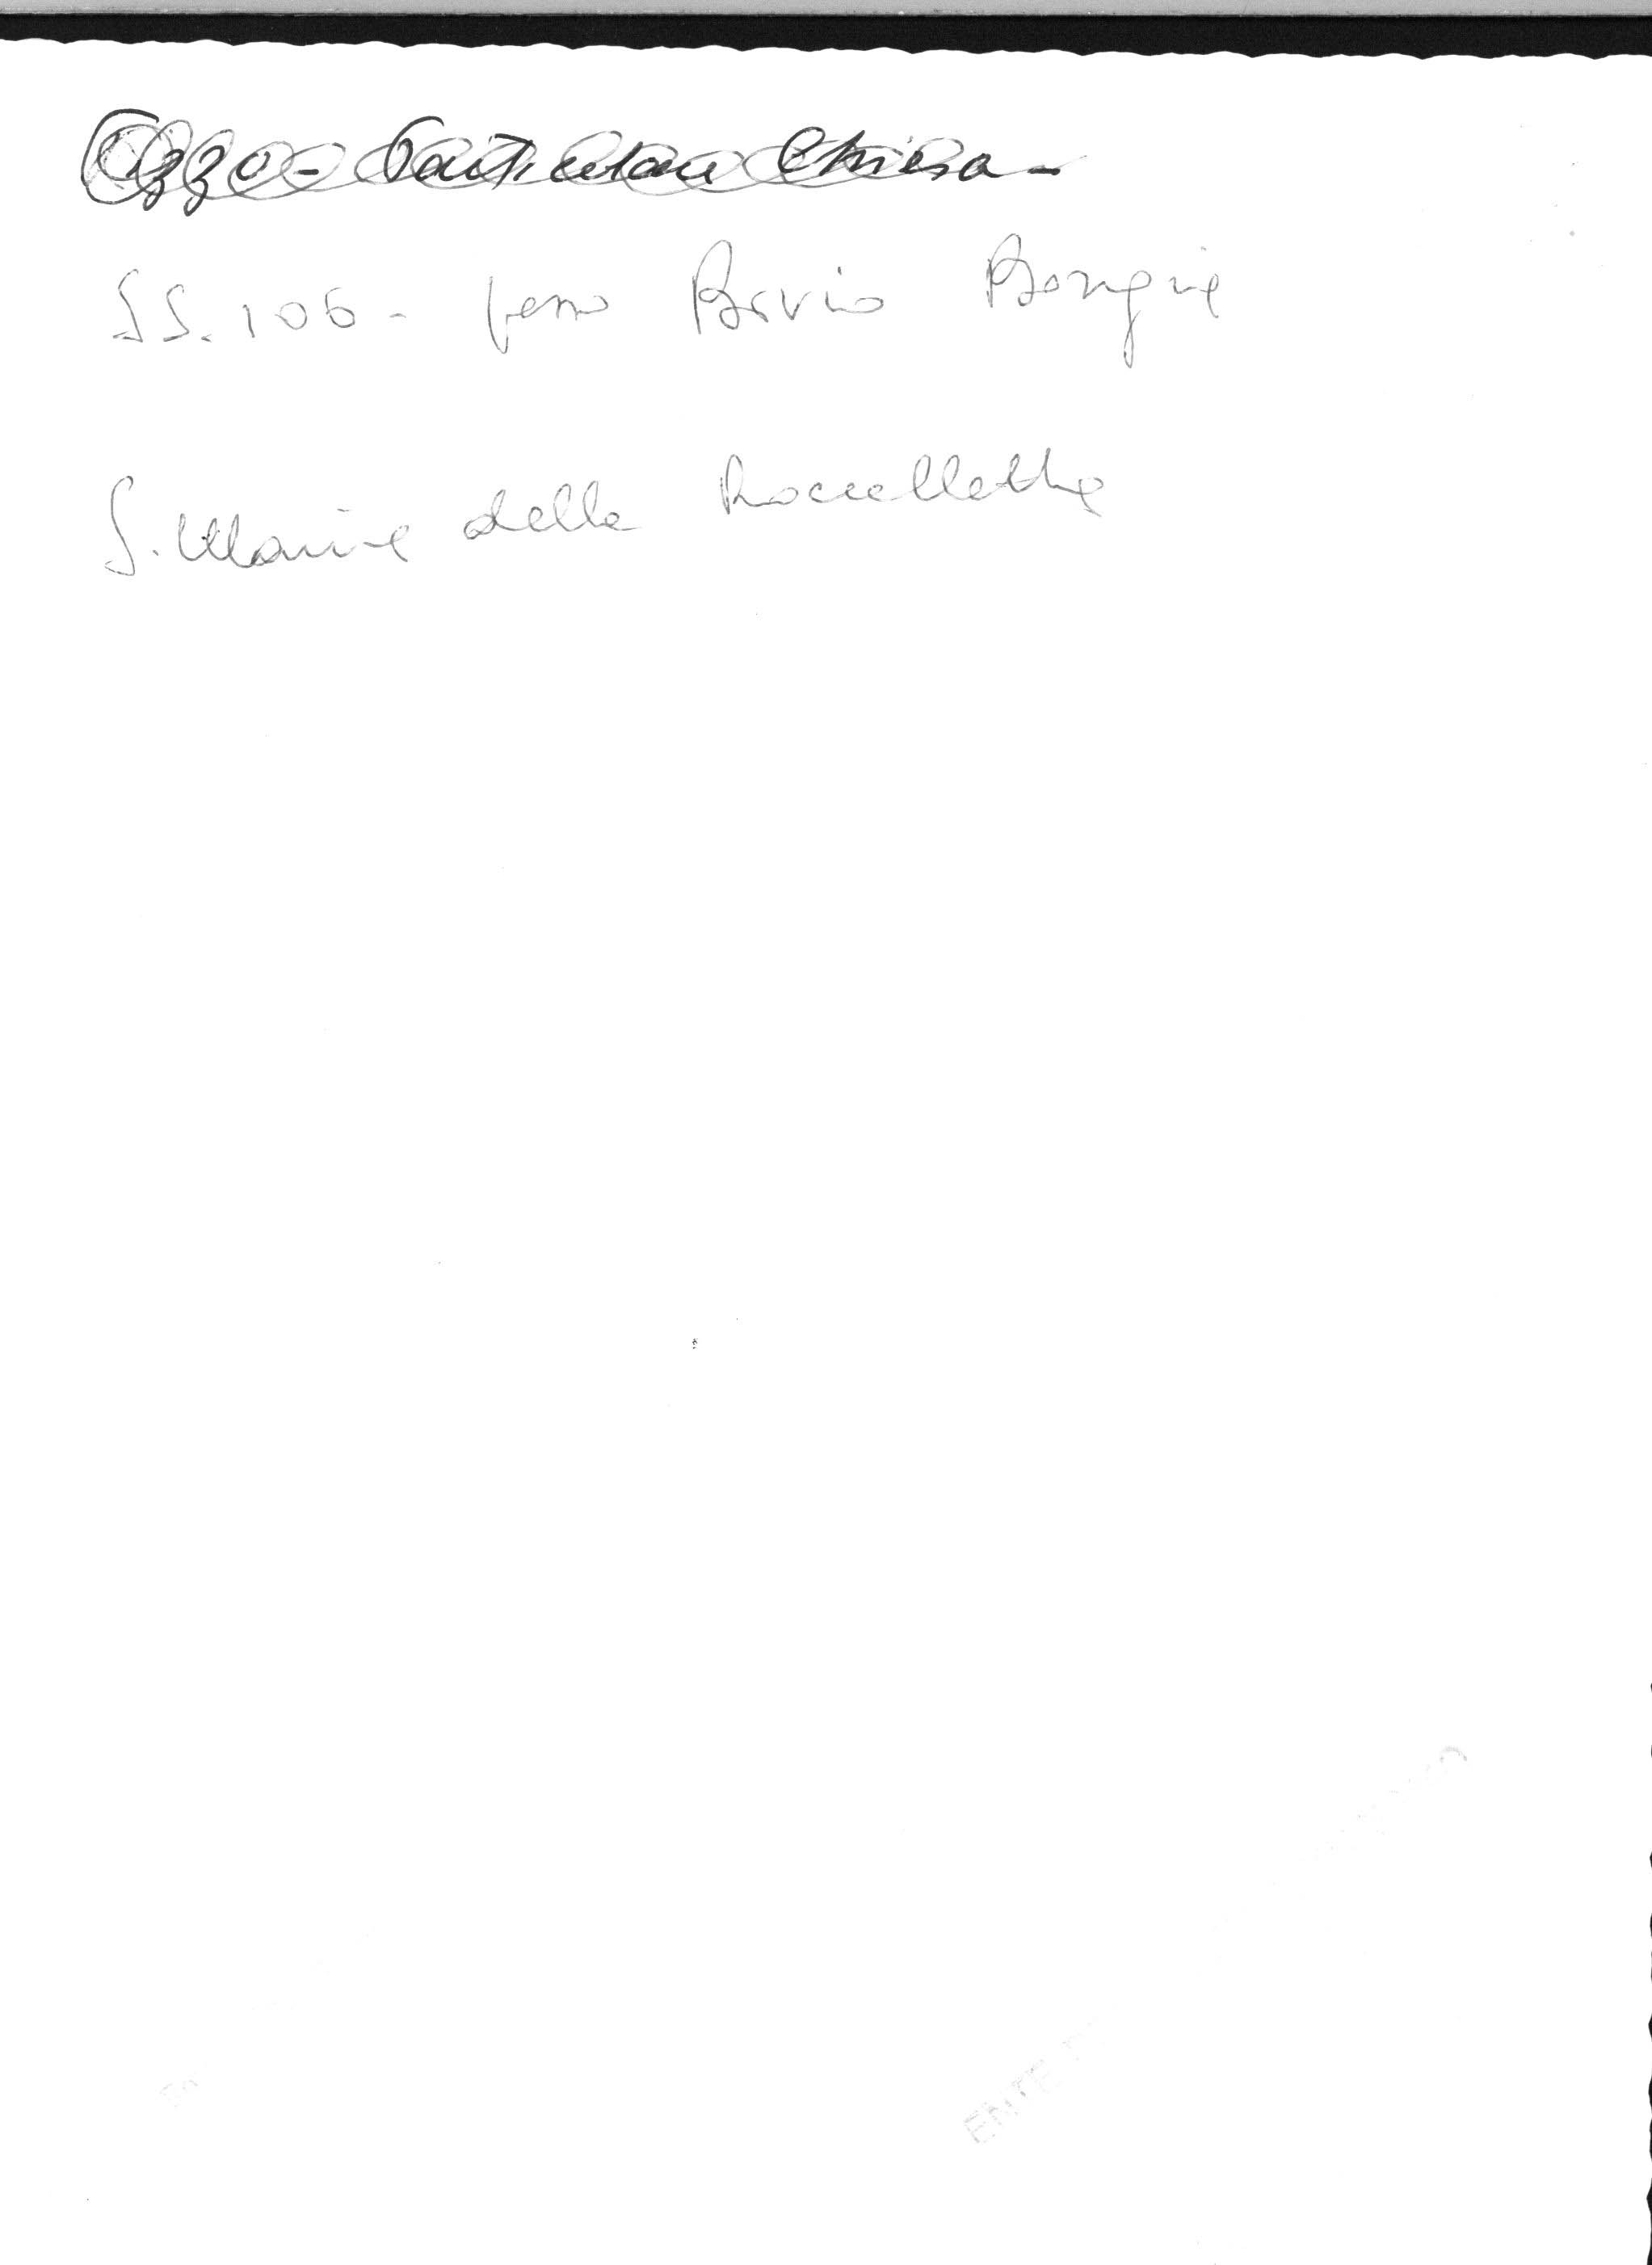 Particolare Chiesa -
SS. 106 - presso Bivio Borgia
S. Maria della Roccelletta
ENTE